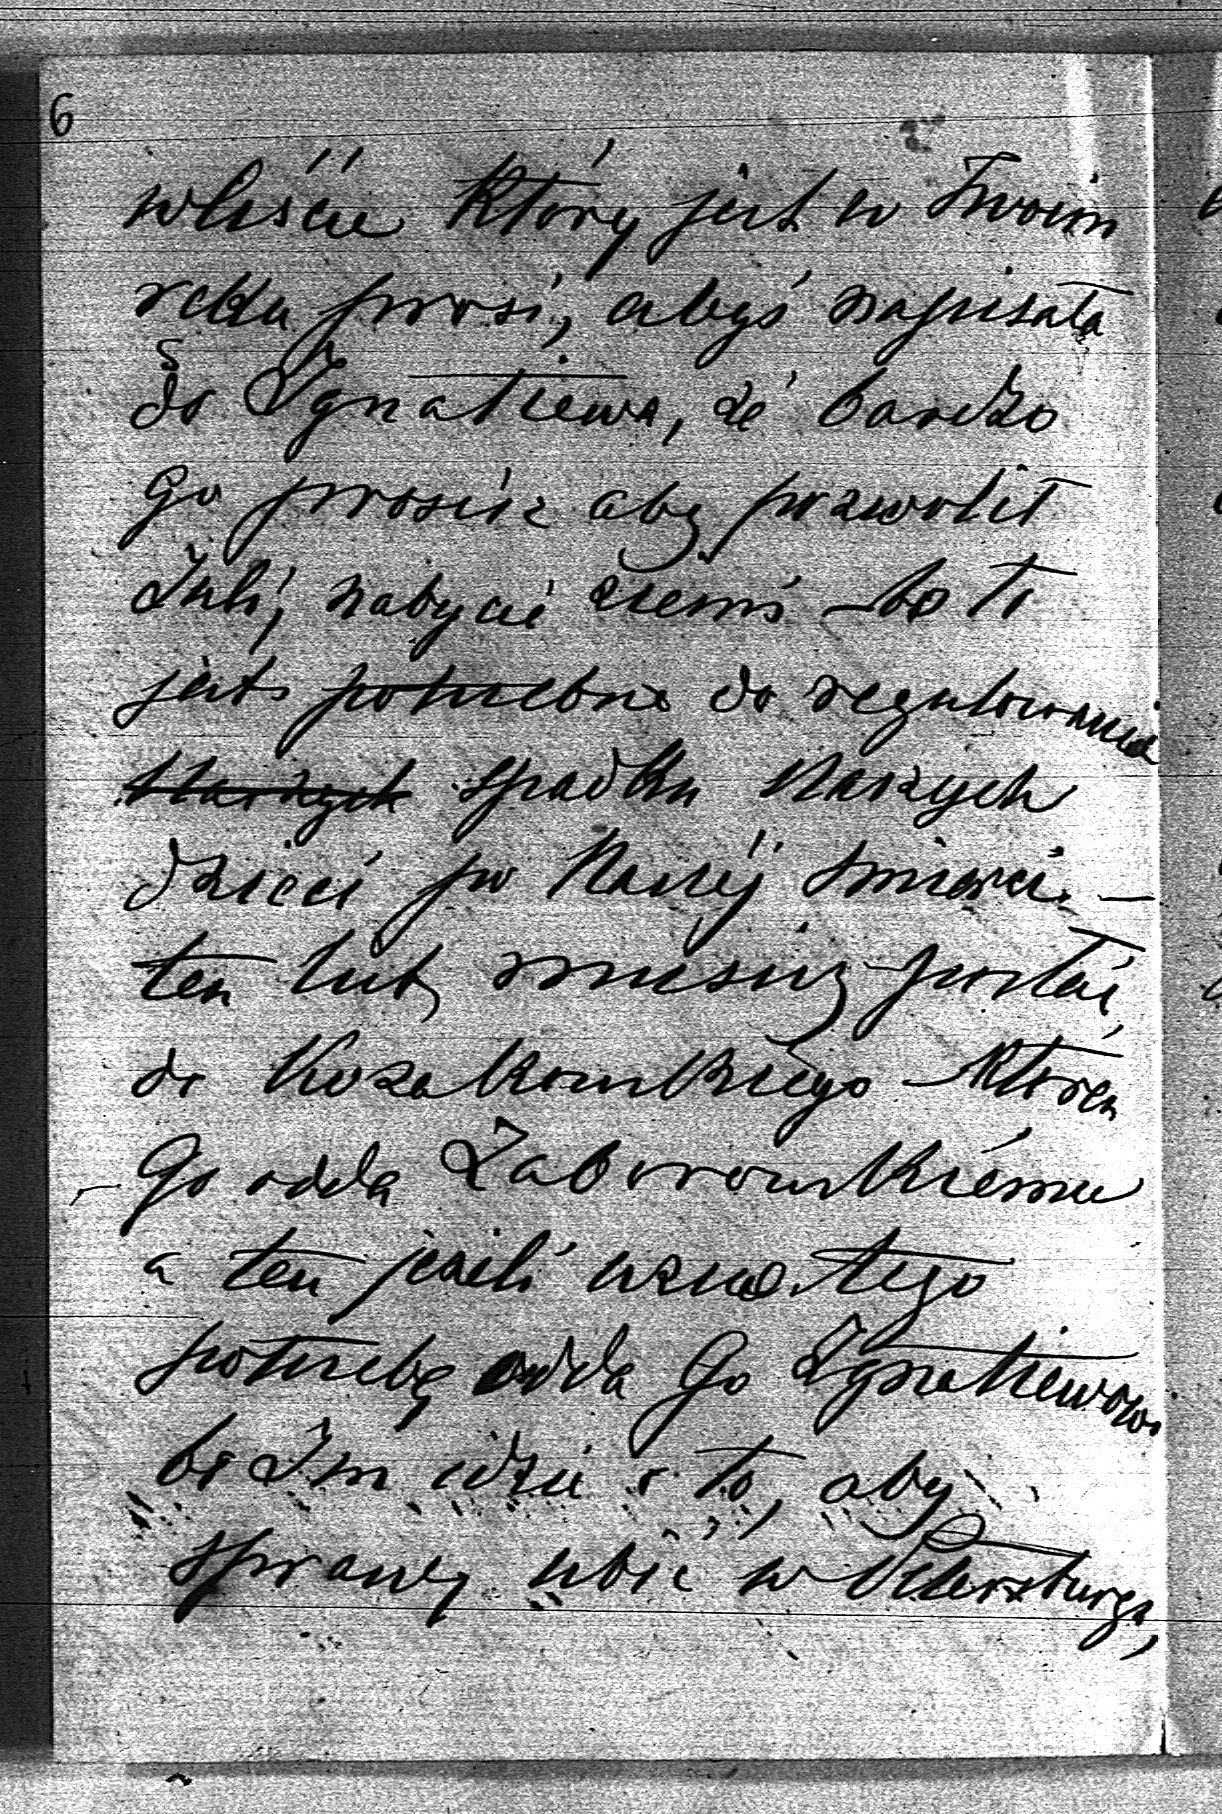 6
wliście który jest w Twoim
ręku prosi, abyś napisała
do Ignatiewa, że bardzo
Go prosisz aby pozwolił
Julij nabycie ziemi bo to
jest potrzebne do regulowania
Naszych spadku Naszych
dzieci po Naszéj śmierci —
ten list musisz posłać
do Kozakowskiego któren
Go odda Zaborowskiému
a ten jeżeli uzna tego
potrzebę odda Go Ignatiewowi
bo Im idzie o to, aby
sprawę ubić w Petersburga,